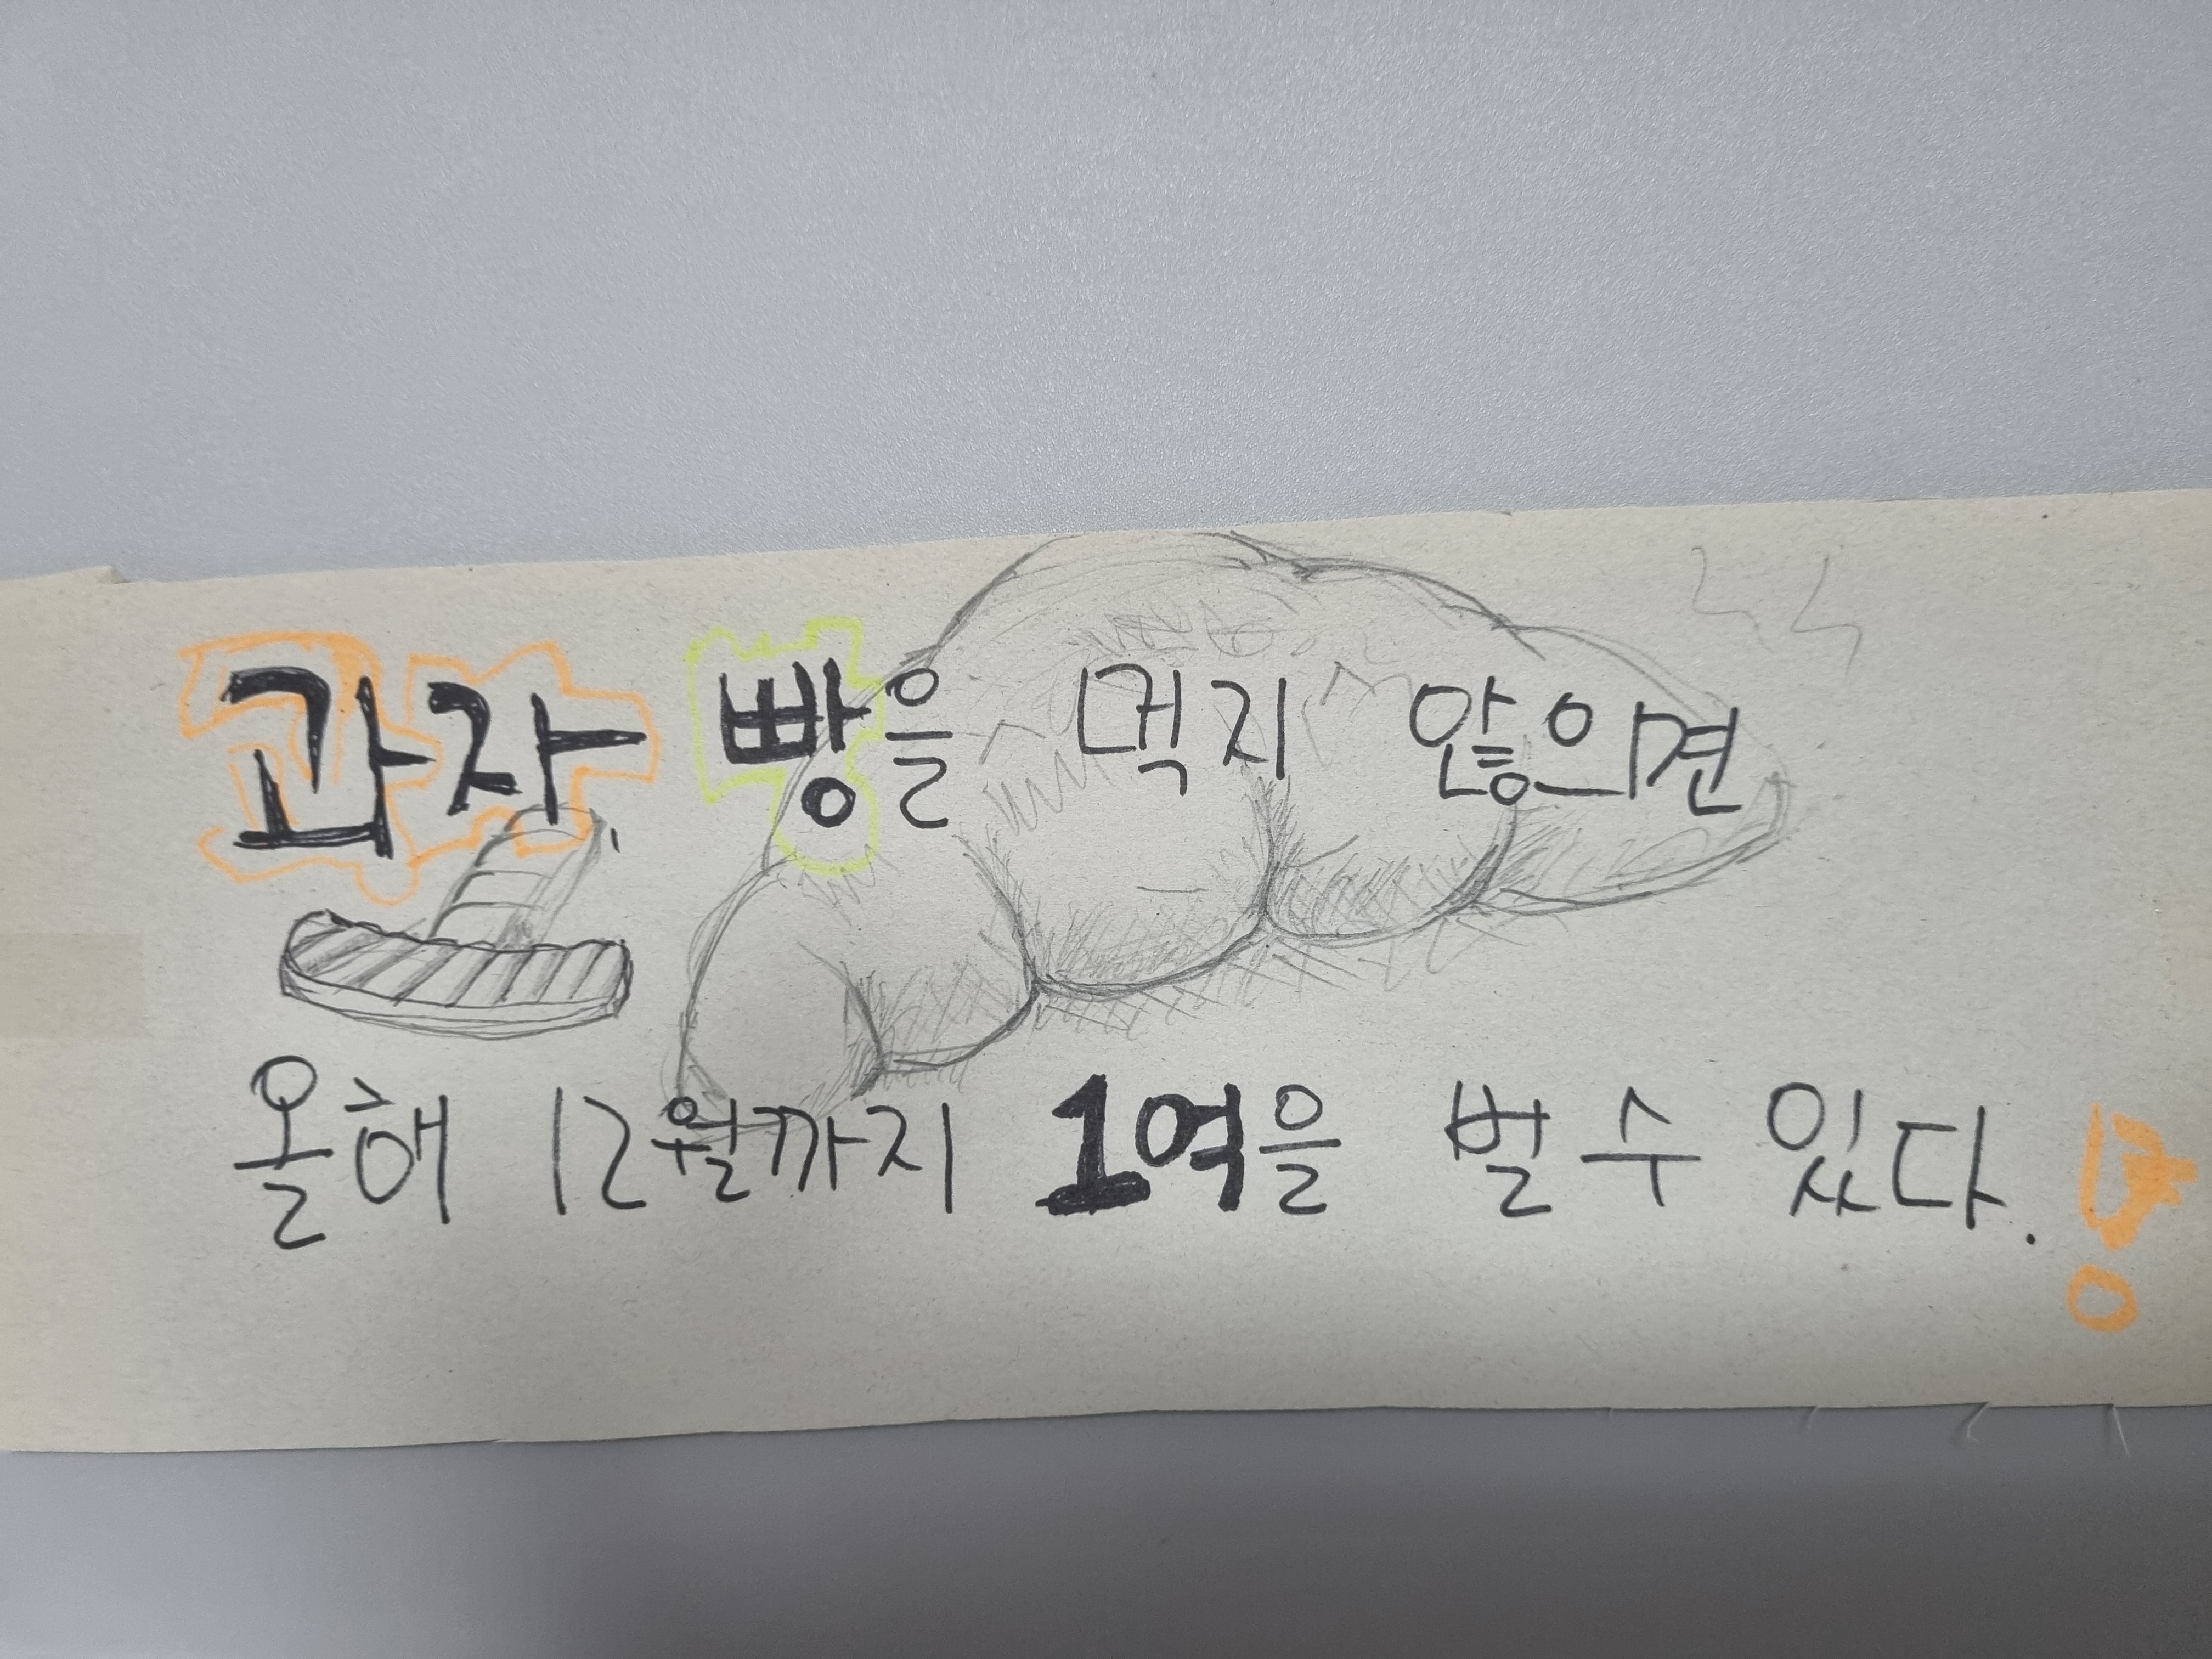 과자, 빵을 먹지 않으면
올해 12월까지 1억을 벌 수 있다.!